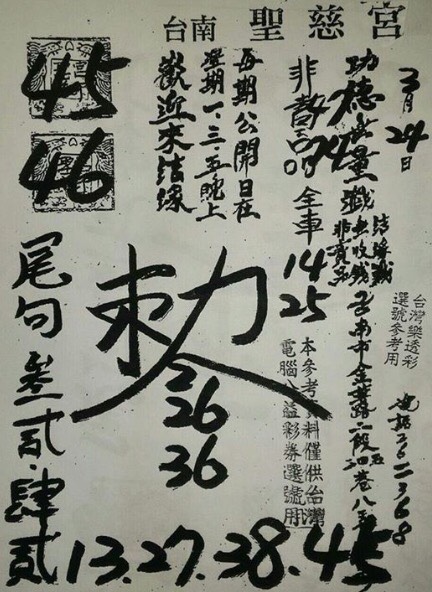 台南 聖慈宮
3月24日
功德無量
結緣戲
無收錢
非賣品
台灣樂透彩
選號參考用
非賣品 全車
14
25
本參考資料僅供台灣
電腦公益彩券選號用
每期公開日在
星期一、三、五晚上
歡迎來結緣
45
46
敕令
2
26
36
尾句 叁貳·肆貳
13.27.38.45